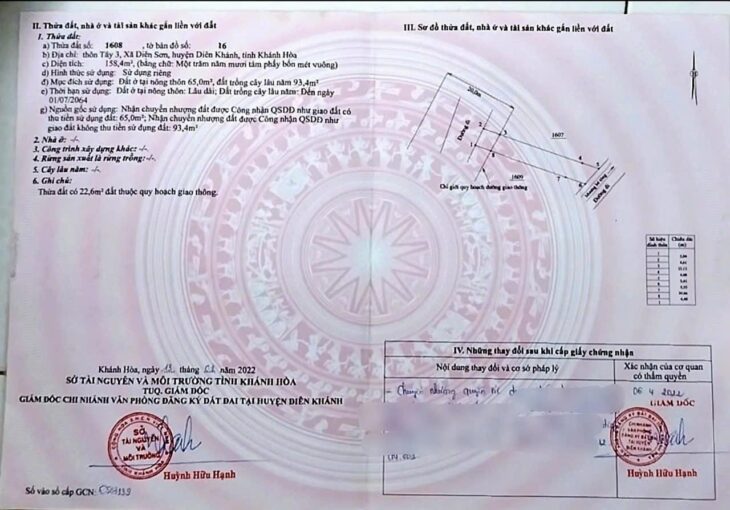 II. Thửa đất, nhà ở và tài sản khác gắn liền với đất
1. Thửa đất:
a) Thửa đất số: 1608, tờ bản đồ số: 16
b) Địa chỉ: thôn Tây 3, Xã Diên Sơn, huyện Diên Khánh, tỉnh Khánh Hòa
c) Diện tích: 158,4m², (bằng chữ: Một trăm năm mươi tám phẩy bốn mét vuông)
d) Hình thức sử dụng: Sử dụng riêng
đ) Mục đích sử dụng: Đất ở tại nông thôn 65,0m², đất trồng cây lâu năm 93,4m²
e) Thời hạn sử dụng: Đất ở tại nông thôn: Lâu dài; Đất trồng cây lâu năm: Đến ngày
01/07/2064
g) Nguồn gốc sử dụng: Nhận chuyển nhượng đất được Công nhận QSDĐ như giao đất có
thu tiền sử dụng đất: 65,0m²; Nhận chuyển nhượng đất được Công nhận QSDĐ như
giao đất không thu tiền sử dụng đất: 93,4m²
2. Nhà ở: -/-
3. Công trình xây dựng khác: -/-
4. Rừng sản xuất là rừng trồng: -/-
5. Cây lâu năm: -/-
6. Ghi chú:
Thửa đất có 22,6m² đất thuộc quy hoạch giao thông.
Khánh Hòa, ngày tháng năm 2022
SỞ TÀI NGUYÊN VÀ MÔI TRƯỜNG TỈNH KHÁNH HÒA
TUQ. GIÁM ĐỐC
GIÁM ĐỐC CHI NHÁNH VĂN PHÒNG ĐĂNG KÝ ĐẤT ĐAI TẠI HUYỆN DIÊN KHÁNH
SỞ
TÀI NGUYÊN
VÀ
MÔI TRƯỜNG
Huỳnh Hữu Hạnh
Số vào sổ cấp GCN:
III. Sơ đồ thửa đất, nhà ở và tài sản khác gắn liền với đất
20,0m
Đường đi
1607
1609
Chỉ giới quy hoạch đường giao thông
Đường đi
Số hiệu đỉnh thửa
Chiều dài (m)
IV. Những thay đổi sau khi cấp giấy chứng nhận
Nội dung thay đổi và cơ sở pháp lý
Xác nhận của cơ quan
có thẩm quyền
Chuyển nhượng quyền
06 4 2022
GIÁM ĐỐC
Huỳnh Hữu Hạnh